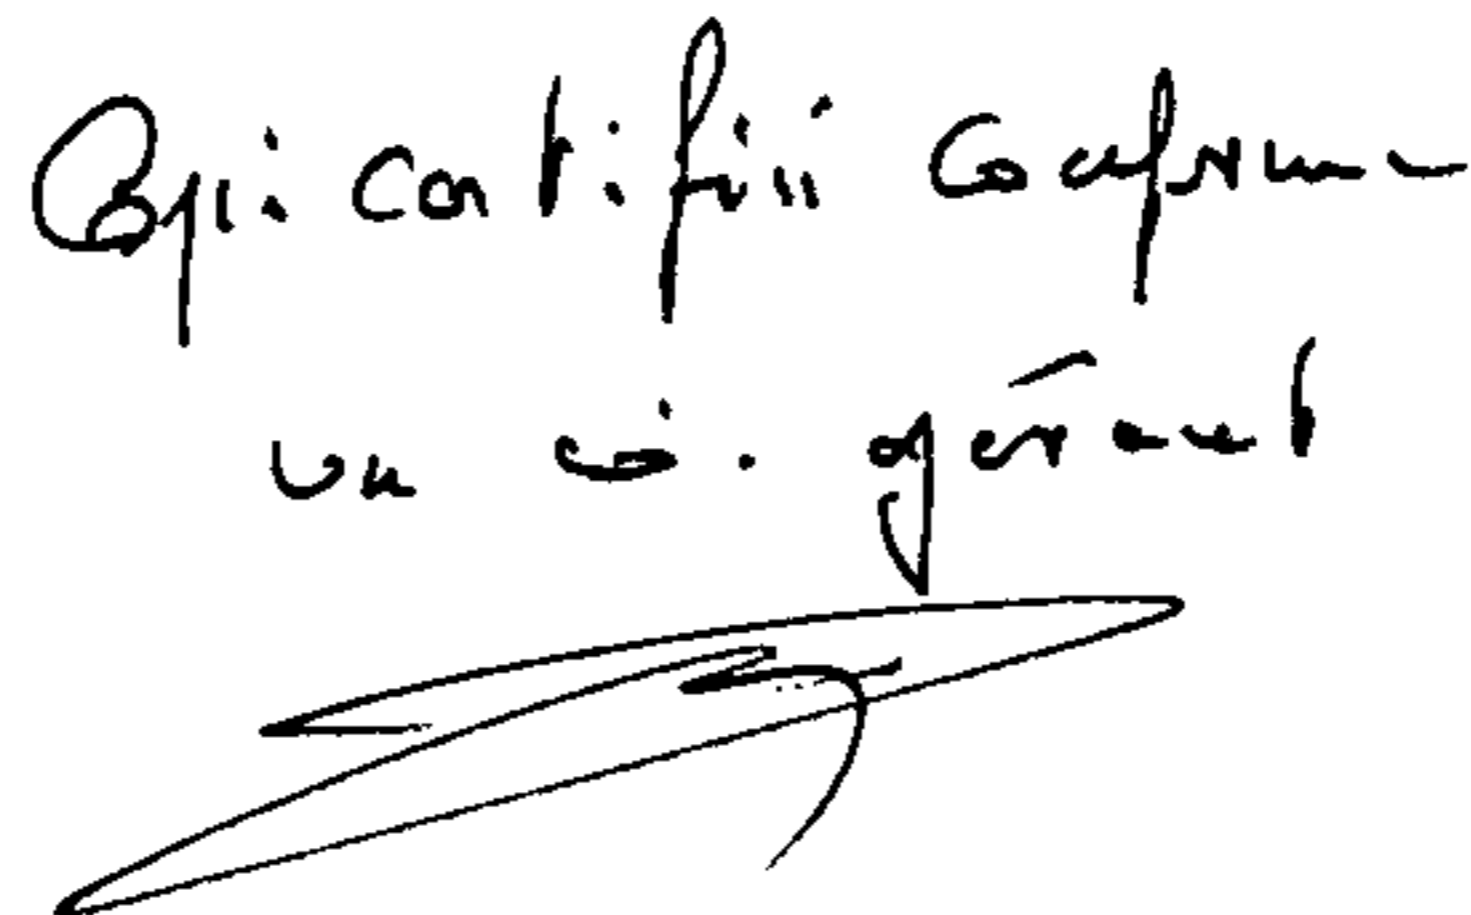 Copie certifiée conforme
un co. gérant